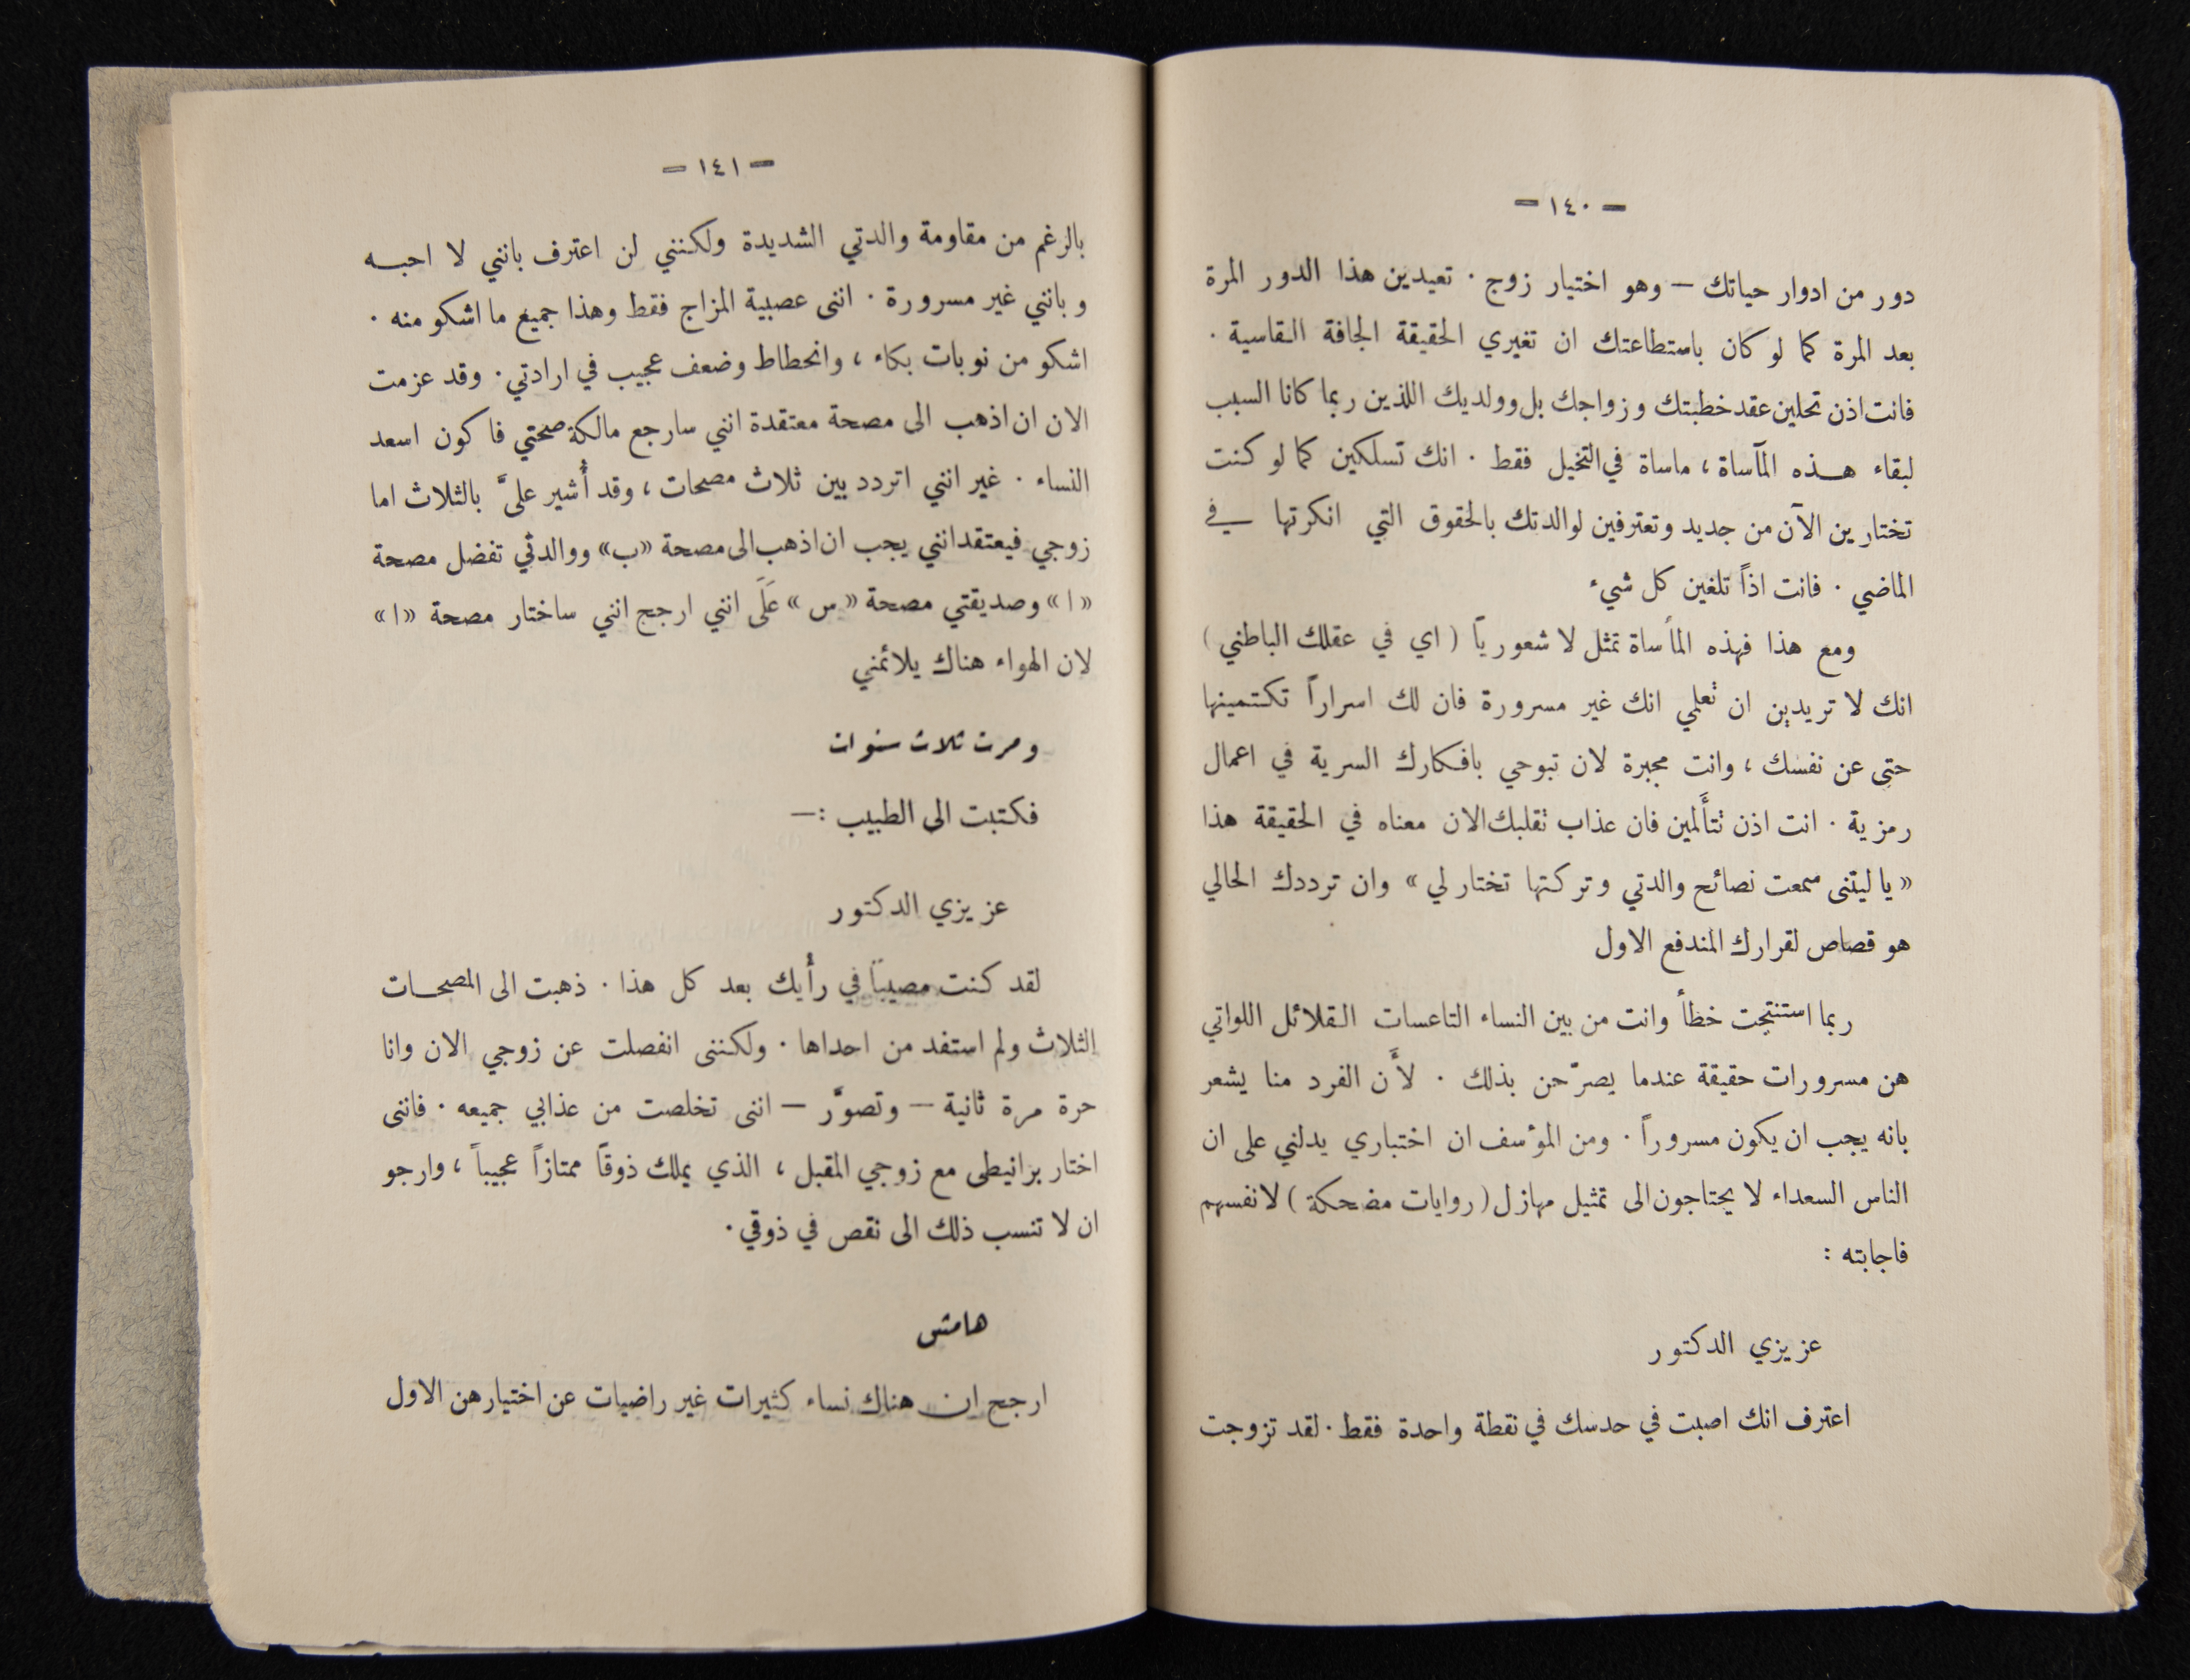 — ١٤٠ —
دور من ادوار حياتك — وهو اختيار زوج . تعيدين هذا الدور المرة
بعد المرة كما لو كان باستطاعتك ان تغيري الحقيقة الجافة القاسية .
فانت اذن تحلين عقد خطبتك وزواجك بل وولديك اللذين ربما كانا السبب
لبقاء هذه المآساة ، ماساة في التخيل فقط . انك تسلكين كما لو كنت
تختارين الآن من جديد وتعترفين لوالدتك بالحقوق التي انكرتها في
الماضي . فانت اذاً تلغين كل شيء
ومع هذا فهذه المأساة تمثل لا شعورياً ( اي في عقلك الباطني )
انك لا تريدين ان تعلمي انك غير مسرورة فان لك اسراراً تكتمينها
حتى عن نفسك ، وانت مجبرة لان تبوحي بافكارك السرية في اعمال
رمزية . انت اذن تتأَلمين فان عذاب تقلبك الان معناه في الحقيقة هذا
« يا ليتنى سمعت نصائح والدتي وتركتها تختار لي » وان ترددك الحالي
هو قصاص لقرارك المندفع الاول
ربما استنتجت خطأ وانت من بين النساء التاعسات القلائل اللواتي
هن مسرورات حقيقة عندما يصرّحن بذلك . لأَن الفرد منا يشعر
بانه يجب ان يكون مسروراً . ومن المؤسف ان اختباري يدلني على ان
الناس السعداء لا يحتاجون الى تمثيل مهازل ( روايات مضحكة ) لانفسهم
فاجابته :
عزيزي الدكتور
اعترف انك اصبت في حدسك في نقطة واحدة فقط . لقد تزوجت
— ١٤١ —
بالرغم من مقاومة والدتي الشديدة ولكنني لن اعترف بانني لا احبه
وبانني غير مسرورة . اننى عصبية المزاج فقط وهذا جميع ما اشكو منه .
اشكو من نوبات بكاء ، وانحطاط وضعف عجيب في ارادتي . وقد عزمت
الان ان اذهب الى مصحة معتقدة انني سارجع مالكة صحتي فاكون اسعد
النساء . غير انني اتردد بين ثلاث مصحات ، وقد أُشير علىَّ بالثلاث اما
زوجي فيعتقد انني يجب ان اذهب الى مصحة «ب» ووالدتي تفضل مصحة
«ا» وصديقتي مصحة «س» عَلَى انني ارجح انني ساختار مصحة «ا»
لان الهواء هناك يلائمني
ومرت ثلاث سنوات
فكتبت الى الطبيب :—
عزيزي الدكتور
لقد كنت مصيباً في رأْيك بعد كل هذا . ذهبت الى المصحات
الثلاث ولم استفد من احداها . ولكننى انفصلت عن زوجي الان وانا
حرة مرة ثانية — وتصوَّر — اننى تخلصت من عذابي جميعه . فاننى
اختار برانيطى مع زوجي المقبل ، الذي يملك ذوقاً ممتازاً عجيباً ، وارجو
ان لا تنسب ذلك الى نقص في ذوقي .
هامش
ارجح ان هناك نساء كثيرات غير راضيات عن اختيارهن الاول